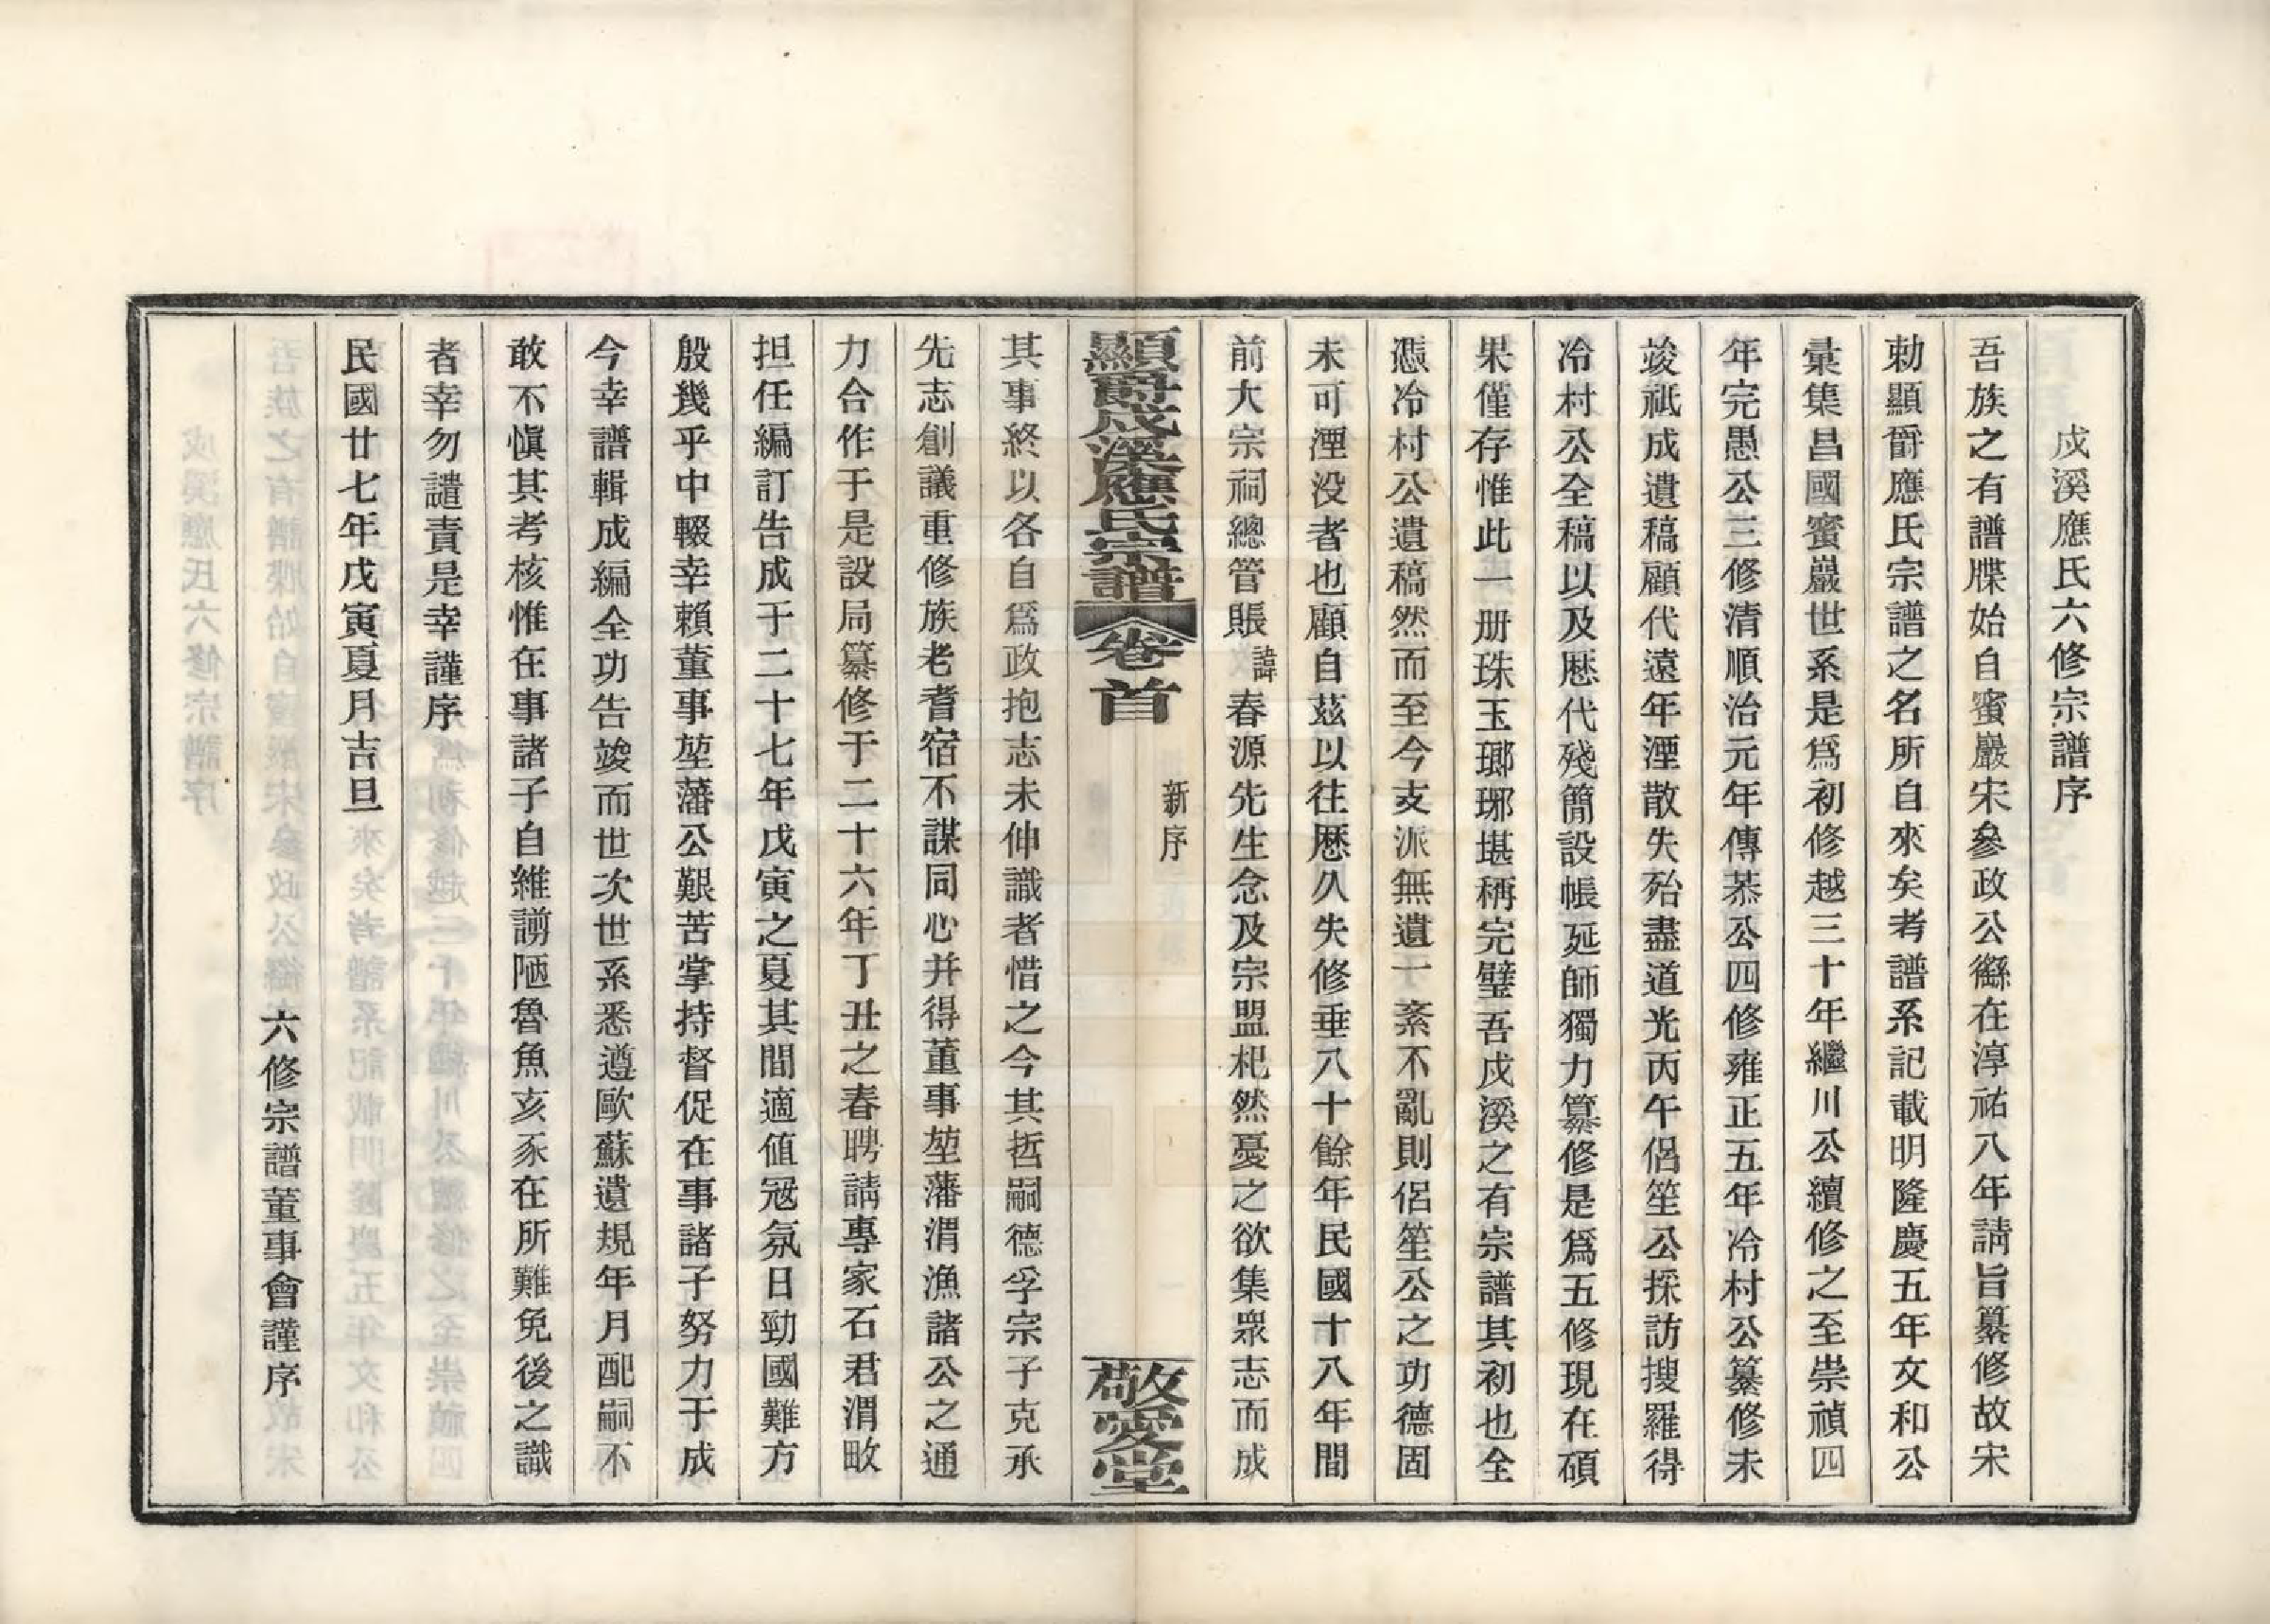 戍溪應氏六修宗譜序
吾族之有譜牒始自蜜巖宋參政公㒡在淳祐八年請旨纂修故宋
勅顯爵應氏宗譜之名所自來矣考譜系記載明隆慶五年文和公
彙集昌國蜜巖世系是爲初修越三十年繼川公續修之至崇禎四
年完愚公三修清順治元年傳恭公四修雍正五年冷村公纂修未
竣祇成遺稿顧代遠年湮散失殆盡道光丙午侶笙公採訪搜羅得
冷村公全稿以及歷代殘簡設帳延師獨力纂修是爲五修現在碩
果僅存惟此一册珠玉瑯琊堪稱完璧吾戍溪之有宗譜其初也全
憑冷村公遺稿然而至今支派無遺一紊不亂則侶笙公之功德固
未可湮没者也顧自茲以往歷久失修垂八十餘年民國十八年間
前大宗祠總管賬諱春源先生念及宗盟杞然憂之欲集衆志而成
顯爵戍溪應氏宗譜 卷首 新序 一 敬愛堂
其事終以各自爲政抱志未伸識者惜之今其哲嗣德孚宗子克承
先志創議重修族老耆宿不謀同心并得董事堃藩渭漁諸公之通
力合作于是設局纂修于二十六年丁丑之春聘請專家石君渭畋
担任編訂告成于二十七年戊寅之夏其間適値寇氛日勁國難方
殷幾乎中輟幸賴董事堃藩公艱苦掌持督促在事諸子努力于成
今幸譜輯成編全功告竣而世次世系悉遵歐蘇遺規年月配嗣不
敢不愼其考核惟在事諸子自維謭陋魯魚亥豕在所難免後之識
者幸勿譴責是幸謹序
民國廿七年戊寅夏月吉旦
六修宗譜董事會謹序